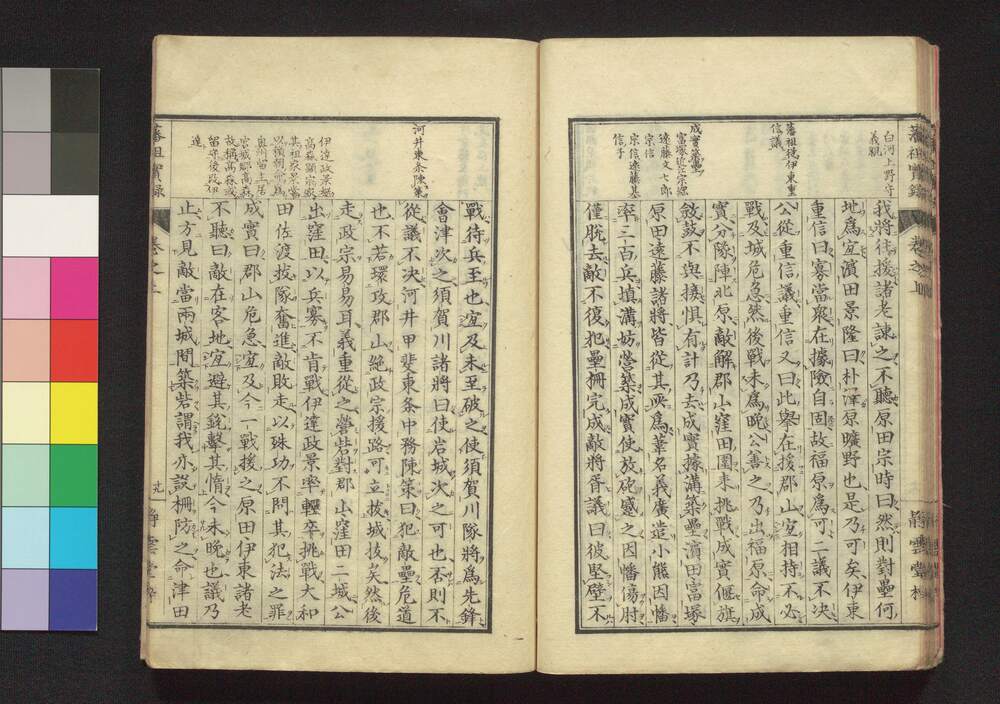 白河上野守
義親
藩祖徙伊東重
信議
成實築壘
富塚近江宗綱
遠藤文七郎
宗信
宗信遠藤基
信子
藩祖實錄
我將往援諸老諫之不聽原田宗時曰然則對壘何
地爲宜濱田景隆曰朴澤原曠野也是乃可矣伊東
重信曰寡當衆在據險自固故福原爲可二議不決
公從重信議重信又曰此擧在援郡山宜相持不必
戰及城危急然後戰未爲晩公善之乃出福原命成
實分隊陣北原敵解郡山窪田圍來挑戰成實偃旗
斂鼓不與接惧有計乃去成實據溝築壘濱田富塚
原田遠藤諸將皆從其所爲葦名義廣造小熊因幡
率二百兵塡溝妨營築成實使放砲盪之因幡傷肘
僅脫去敵不復犯壘柵完成敵將胥議曰彼堅壁不
河井東条陳策
戰待兵至也宜及未至破之使須賀川隊將爲先鋒
會津次之須賀川諸將曰使岩城次之可也否則不
從議不决河井甲斐東条中務陳策曰犯敵壘危道
也不若環攻郡山絶政宗援路可立拔城拔矣然後
走政宗易易耳義重從之營砦對郡山窪田二城公
出窪田以兵寡不肯戰伊達政景率輕卒挑戰大和
田佐渡拔隊奮進敵敗走以殊功不問其犯法之罪
成實曰郡山危急宜及今一戰援之原田伊東諸老
不聽曰敵在客地宜避其銳擊其惰今未晩也議乃
止方見敵當兩城間築砦謂我亦設柵防之命津田
藩祖實錄
卷之上
靜雲堂梓